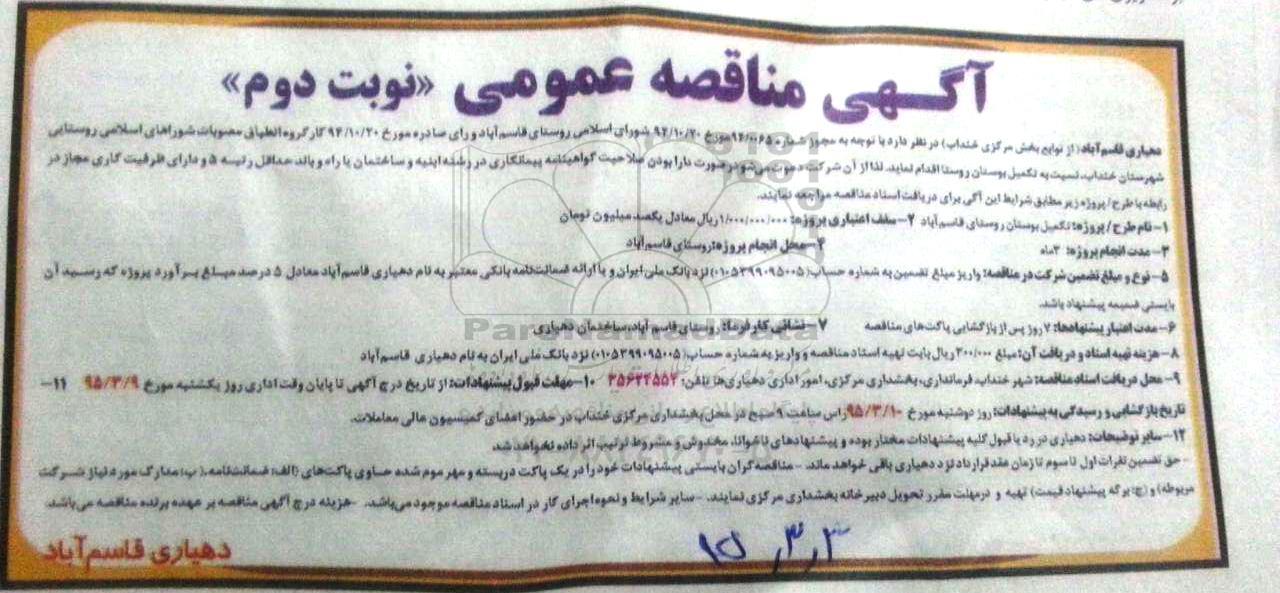 آگهی مناقصه عمومی «نوبت دوم»
دهیاری قاسم‌آباد (از توابع بخش مرکزی خنداب) در نظر دارد با توجه به مجوز شماره ۹۴/۰۰۶۵ مورخ ۹۴/۱۰/۲۰ شورای اسلامی روستای قاسم‌آباد و رای صادره مورخ ۹۴/۱۰/۲۰ کارگروه انطباق مصوبات شوراهای اسلامی روستایی
شهرستان خنداب، نسبت به تکمیل بوستان روستا اقدام نماید. لذا از آن شرکت دعوت می‌شود در صورت دارا بودن صلاحیت گواهینامه پیمانکاری در رشته ابنیه و ساختمان یا راه و باند حداقل رتبه ۵ و دارای ظرفیت کاری مجاز در
رابطه با طرح / پروژه زیر مطابق شرایط این آگهی برای دریافت اسناد مناقصه مراجعه نمایند.
۱- نام طرح / پروژه: تکمیل بوستان روستای قاسم‌آباد ۲- سقف اعتباری پروژه: ۱/۰۰۰/۰۰۰/۰۰۰ ریال معادل یکصد میلیون تومان
۳- مدت انجام پروژه: ۳ماه ۴- محل انجام پروژه: روستای قاسم‌آباد
۵- نوع و مبلغ تضمین شرکت در مناقصه: واریز مبلغ تضمین به شماره حساب (۰۱۰۵۳۹۹۰۹۵۰۰۵) نزد بانک ملی ایران و یا ارائه ضمانت‌نامه بانکی معتبر به نام دهیاری قاسم‌آباد معادل ۵ درصد مبلغ برآورد پروژه که رسید آن
بایستی ضمیمه پیشنهاد باشد.
۶- مدت اعتبار پیشنهادها: ۷ روز پس از بازگشایی پاکت‌های مناقصه ۷- نشانی کارفرما: روستای قاسم آباد، ساختمان دهیاری
ParsNamadData
۸- هزینه تهیه اسناد و دریافت آن: مبلغ ۲۰۰/۰۰۰ ریال بابت تهیه اسناد مناقصه و واریز به شماره حساب (۰۱۰۵۳۹۹۰۹۵۰۰۵) نزد بانک ملی ایران به نام دهیاری قاسم‌آباد
۹- محل دریافت اسناد مناقصه: شهر خنداب، فرمانداری، بخشداری مرکزی، امور اداری دهیاری‌ها تلفن: ۳۵۶۲۴۵۵۲ ۱۰- مهلت قبول پیشنهادات: از تاریخ درج آگهی تا پایان وقت اداری روز یکشنبه مورخ ۹۵/۳/۹ ۱۱-
تاریخ بازگشایی و رسیدگی به پیشنهادات: روز دوشنبه مورخ ۹۵/۳/۱۰ راس ساعت ۹ صبح در محل بخشداری مرکزی خنداب در حضور اعضای کمیسیون مالی معاملات.
۱۲- سایر توضیحات: دهیاری در رد یا قبول کلیه پیشنهادات مختار بوده و پیشنهادهای ناخوانا، مخدوش و مشروط ترتیب اثر داده نخواهد شد
- حق تضمین نفرات اول تا سوم تا زمان عقد قرارداد نزد دهیاری باقی خواهد ماند. - مناقصه‌گران بایستی پیشنهادات خود را در یک پاکت دربسته و مهر موم شده حاوی پاکت‌های (الف: ضمانت‌نامه، ب: مدارک مورد نیاز شرکت
مربوطه) و (ج: برگه پیشنهاد قیمت) تهیه و درمهلت مقرر تحویل دبیرخانه بخشداری مرکزی نمایند. - سایر شرایط و نحوه اجرای کار در اسناد مناقصه موجود می‌باشد. - هزینه درج آگهی مناقصه بر عهده برنده مناقصه می‌باشد
دهیاری قاسم‌آباد
۹۵،۳،۳